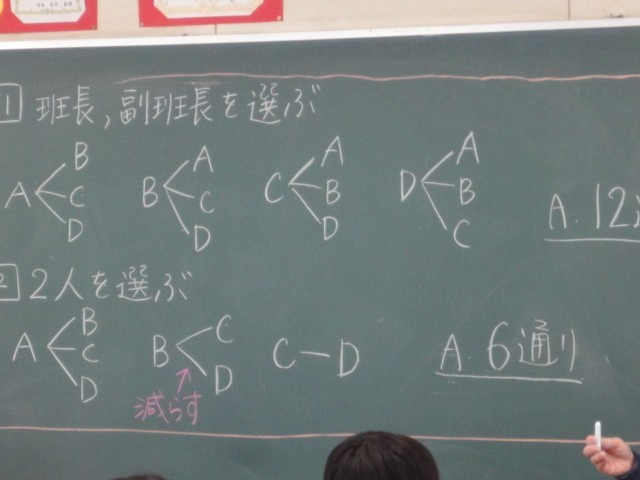 1 班長,副班長を選ぶ
A B C D
B A C D
C A B D
D A B C
A. 12通
2 2人を選ぶ
A B C D
B C D
C—D
A. 6通り
減らす